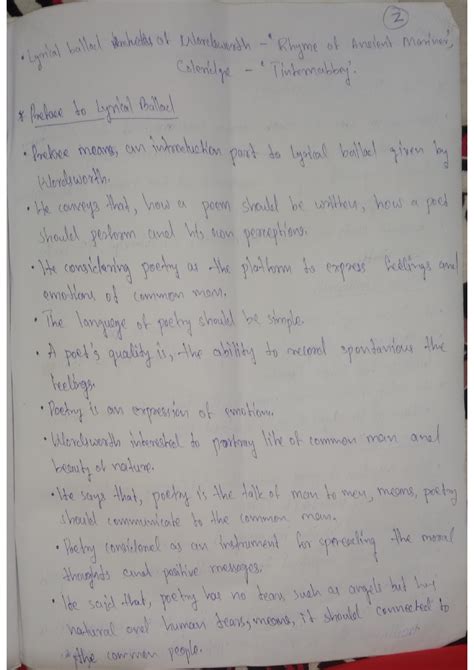 2
• Lyrical ballad of Wordsworth - 'Rhyme of Ancient Mariner',
Coleridge - 'Tinternabbey'.
* Preface to Lyrical Ballad
• Preface means, an introduction part to Lyrical ballad given by
Wordsworth.
• He conveys that, how a poem should be written, how a poet
should perform and his own perceptions.
• He considering poetry as the platform to express feelings and
emotions of common man.
• The language of poetry should be simple.
• A poet's quality is, the ability to record spontanious the
feelings.
• Poetry is an expression of emotions.
• Wordsworth interested to portray life of common man and
beauty of nature.
• He says that, poetry is the talk of man to men, means, poetry
should communicate to the common man.
• Poetry considered as an instrument for spreading the moral
thoughts and positive messages.
• He said that, poetry has no tears such as angels but
natural and human tears, means, it should connected to
the common people.